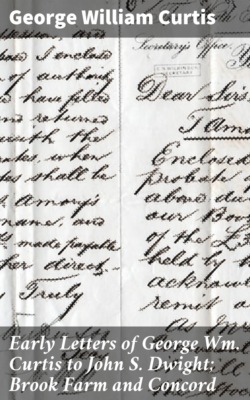 George William Curtis
I enclosed
of authority
have filled
and returned
with the
when
shall be
Amory's
name, and
made payable
direct-
Truly
Secretary's Office
Dear Sirs
I am
Enclosed
probate
above
our Boo
of the L
held by
acknow
remit a
As M
Early Letters of George Wm.
Curtis to John S. Dwight;
Brook Farm and Concord